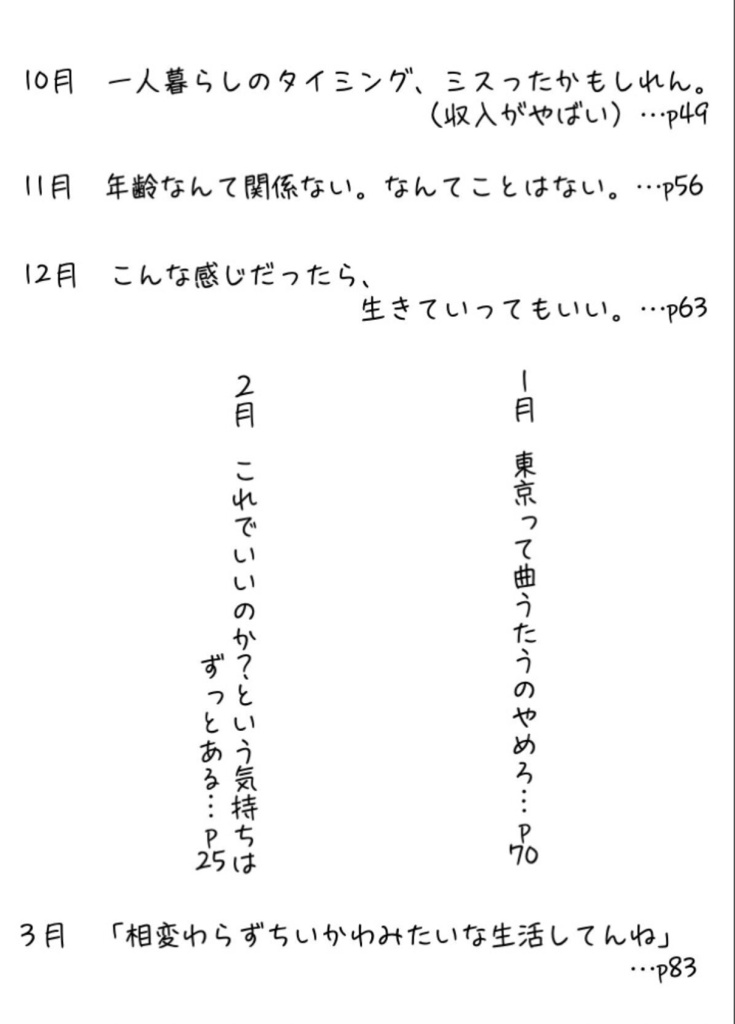 10月　一人暮らしのタイミング、ミスったかもしれん。
（収入がやばい）…p49
11月　年齢なんて関係ない。なんてことはない。…p56
12月　こんな感じだったら、
生きていってもいい。…p63
1月　東京って曲うたうのやめろ…p70
2月　これでいいのか？という気持ちは
ずっとある…p25
3月　「相変わらずちいかわみたいな生活してんね」
…p83